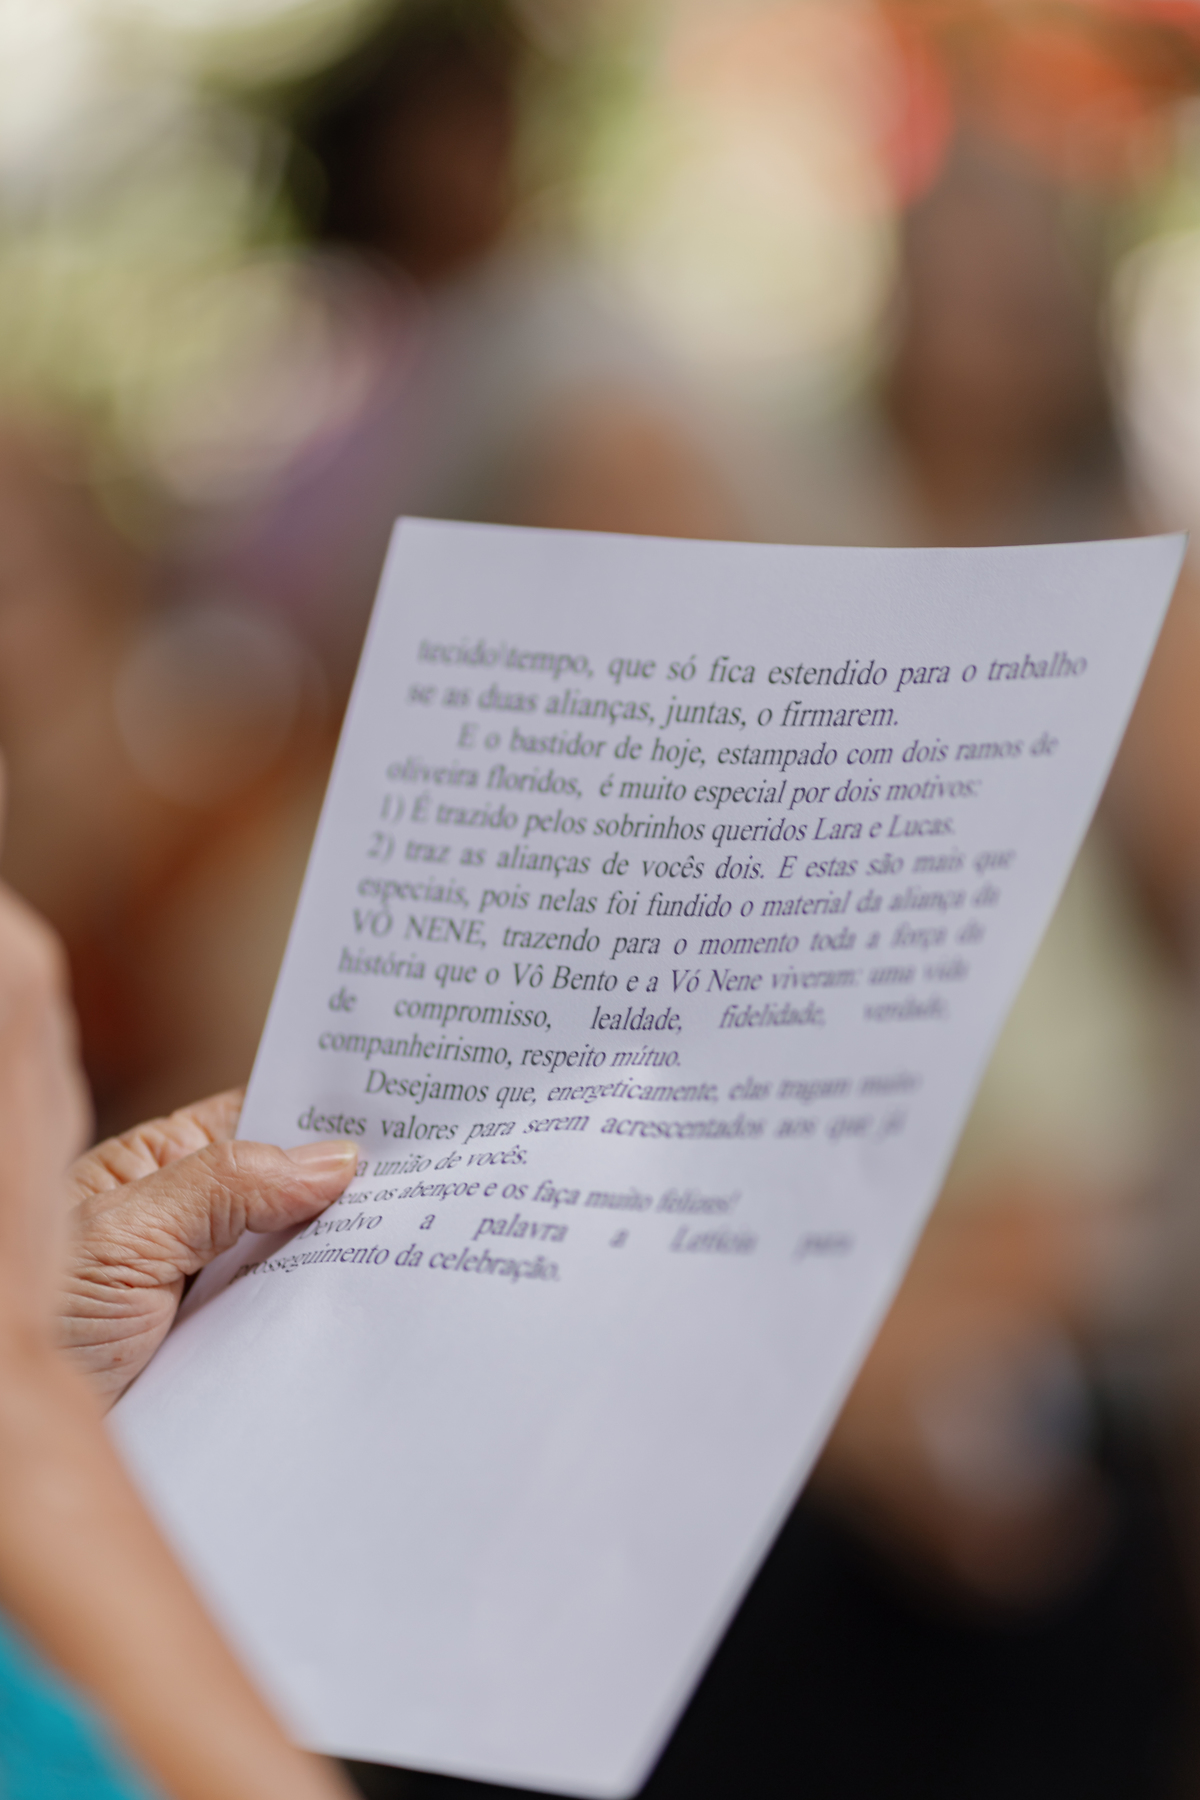 tecido/tempo, que só fica estendido para o trabalho
se as duas alianças, juntas, o firmarem.
E o bastidor de hoje, estampado com dois ramos de
oliveira floridos, é muito especial por dois motivos:
1) É trazido pelos sobrinhos queridos Lara e Lucas.
2) traz as alianças de vocês dois. E estas são mais que
especiais, pois nelas foi fundido o material da aliança da
VÓ NENE, trazendo para o momento toda a força da
história que o Vô Bento e a Vó Nene viveram: uma vida
de compromisso, lealdade, fidelidade, verdade,
companheirismo, respeito mútuo.
Desejamos que, energeticamente, elas tragam muito
destes valores para serem acrescentados aos que já
a união de vocês.
eus os abençoe e os faça muito felizes!
Devolvo a palavra a Letícia para
prosseguimento da celebração.